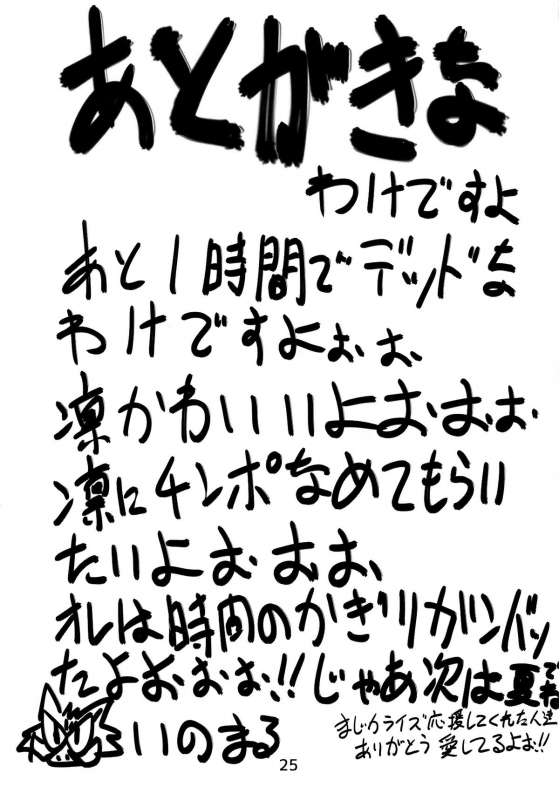 あとがきな
わけですよ
あと1時間でデッドな
わけですよぉぉ
凛かわいいよおおぉ
凛にチンポなめてもらい
たいよぉぉぉ
オレは時間のかぎりガンバッ
たよおぉぉ!!じゃあ次は夏でね
いのまる
まじカライズ応援してくれた人達
ありがとう愛してるよぉ!!
25